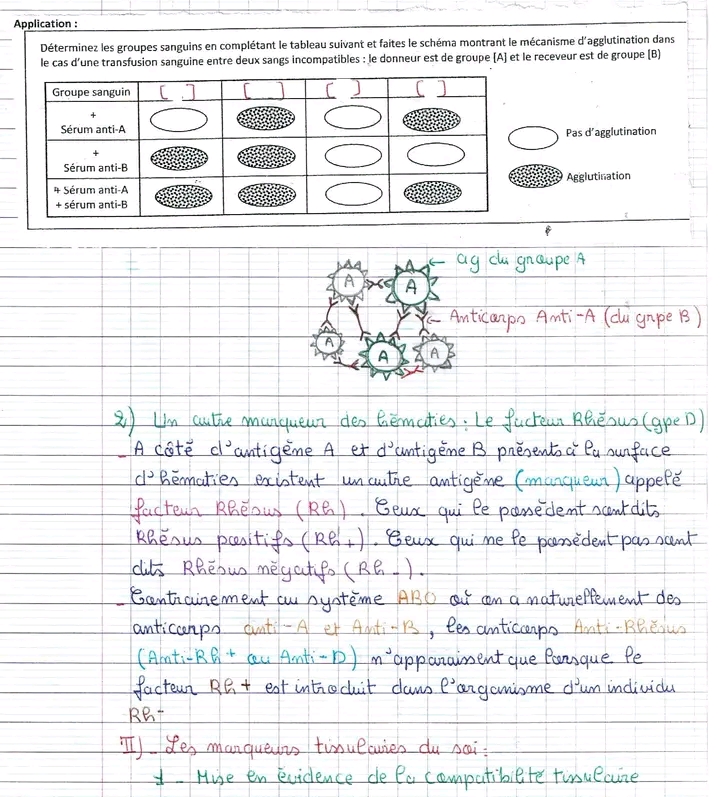 Application :
Déterminez les groupes sanguins en complétant le tableau suivant et faites le schéma montrant le mécanisme d'agglutination dans
le cas d'une transfusion sanguine entre deux sangs incompatibles : le donneur est de groupe [A] et le receveur est de groupe [B]
Groupe sanguin [ ] [ ] [ ] [ ]
+
Sérum anti-A
Pas d'agglutination
+
Sérum anti-B
Agglutination
+ Sérum anti-A
+ sérum anti-B
ag du groupe A
A A
Anticorps Anti-A (du grpe B)
A A A
2) Un autre marqueur des hématies : Le facteur Rhésus (gpe D)
- A côté d'antigène A et d'antigène B présents à la surface
d'hématies existent un autre antigène (marqueur) appelé
facteur Rhésus (Rh). Ceux qui le possèdent sont dits
Rhésus positifs (Rh+). Ceux qui ne le possèdent pas sont
dits Rhésus négatifs (Rh-).
- Contrairement au système ABO où on a naturellement des
anticorps anti-A et Anti-B, les anticorps Anti-Rhésus
(Anti-Rh+ ou Anti-D) n'apparaissent que lorsque le
facteur Rh+ est introduit dans l'organisme d'un individu
Rh-
II) - Les marqueurs tissulaires du soi :
1 - Mise en évidence de la compatibilité tissulaire